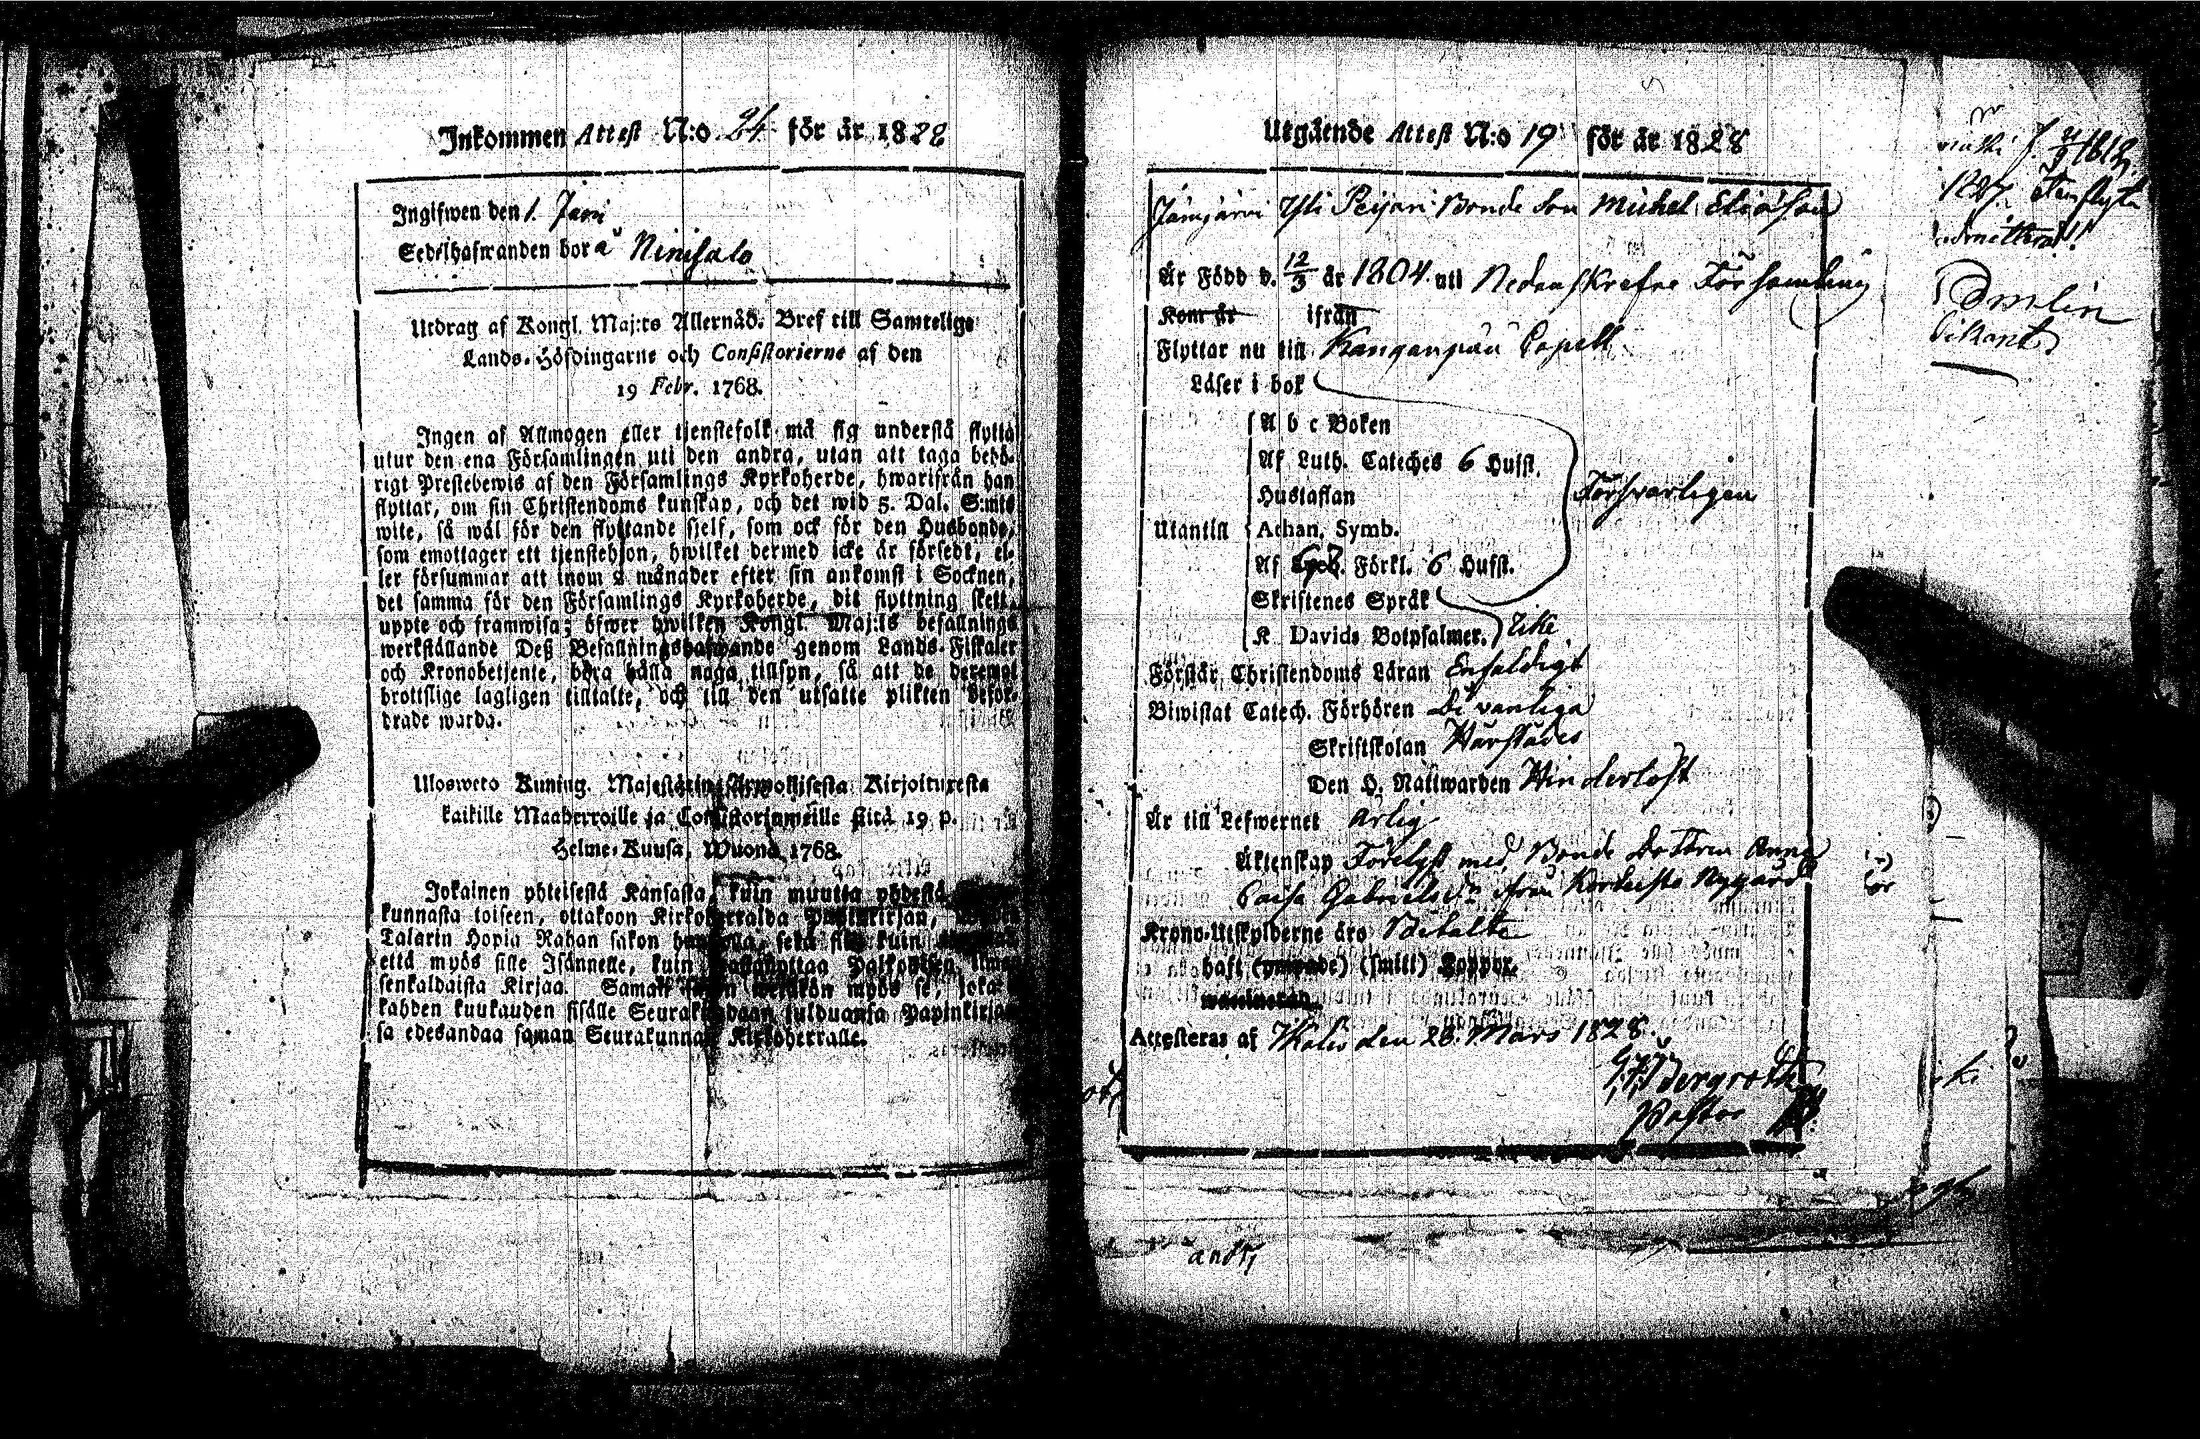 Inkommen Attest N:o 24 för år 1828
Ingifwen den 1. Juni
Sedelhafwanden bor å Niinisalo
Utdrag af Kongl. Maj:ts Allernåd. Bref till Samtelige
Lands-Höfdingarne och Consistorierne af den
19 Febr. 1768.
Ingen af Allmogen eller tjenstefolk må sig understå flytta
utur den ena Församlingen uti den andra, utan att taga behö-
rigt Prestebewis af den Församlings Kyrkoherde, hwarifrån han
flyttar, om sin Christendoms kunskap, och det wid 5. Dal. S:mts
wite, så wäl för den flyttande sjelf, som ock för den Husbonde,
som emottager ett tjenstehjon, hwilket dermed icke är försedt, el-
ler försummar att inom 2 månader efter sin ankomst i Socknen,
det samma för den Församlings Kyrkoherde, dit flyttning skett,
uppte och framwisa; öfwer hwilken Kongl. Maj:ts befallnings
werkställande Deß Befallningshafwande genom Lands-Fiskaler
och Kronobetjente, böra hålla noga tillsyn, så att de deremot
brottslige lagligen tilltalte, och till den utsatte plikten befor-
drade warda.
Ulosweto Kuning. Majestätin Armollisesta Kirjoituxesta
kaikille Maaherroille ja Consistoriumeille siitä 19 p.
Helme-Kuusa, Wuona 1768.
Jokainen yhteisestä Kansasta, kuin muutta yhdestä
kunnasta toiseen, ottakoon Kirkoherralda Papinkirjan,
Talarin Hopia Rahan sakon sekä kuin
että myös sille Isännelle, kuin wastanottaa Palkollisen ilman
senkaldaista Kirjaa. Samaa myös se, joka
kahden kuukauden sisälle Seurakundaan tulduansa Papinkirjaa
sa edesandaa saman Seurakunnan Kirkoherralle.
Utgående Attest N:o 19 för år 1828
Jämijärvi Yli Peijari Bonde Son Michel Eliasson
Är Född d. 12/3 år 1804 uti Nedanskrefne Församling
Kom år ifrån
Flyttar nu till Kanganpää Capell
Läser i bok
A b c Boken
Af Luth. Cateches 6 Hufst.
Hustaflan
Försvarligen
Utantill Athan. Symb.
Af Förkl. 6 Hufst.
Skriftenes Språk
K. Davids Botpsalmer. Icke
Förstår Christendoms Läran Enfaldigt
Biwistat Catech. Förhören De vanliga
Skriftskolan Härstädes
Den H. Nattwarden Hinderlöst
Är till Lefwernet ärlig
Äktenskap Förelyst med Bonde Dottren Anna
Caisa Gabrielsdr. ifrån Nygård
Krono-Utskylderne äro Betalte
haft (smitt) Koppor.
Attesteras af Ikalis den 28. Mars 1828.
Bergroth
Pastor